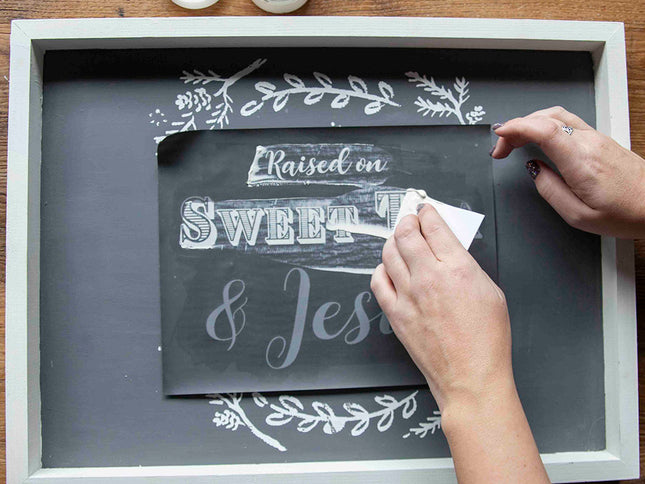 Raised on
SWEET T
& Jes